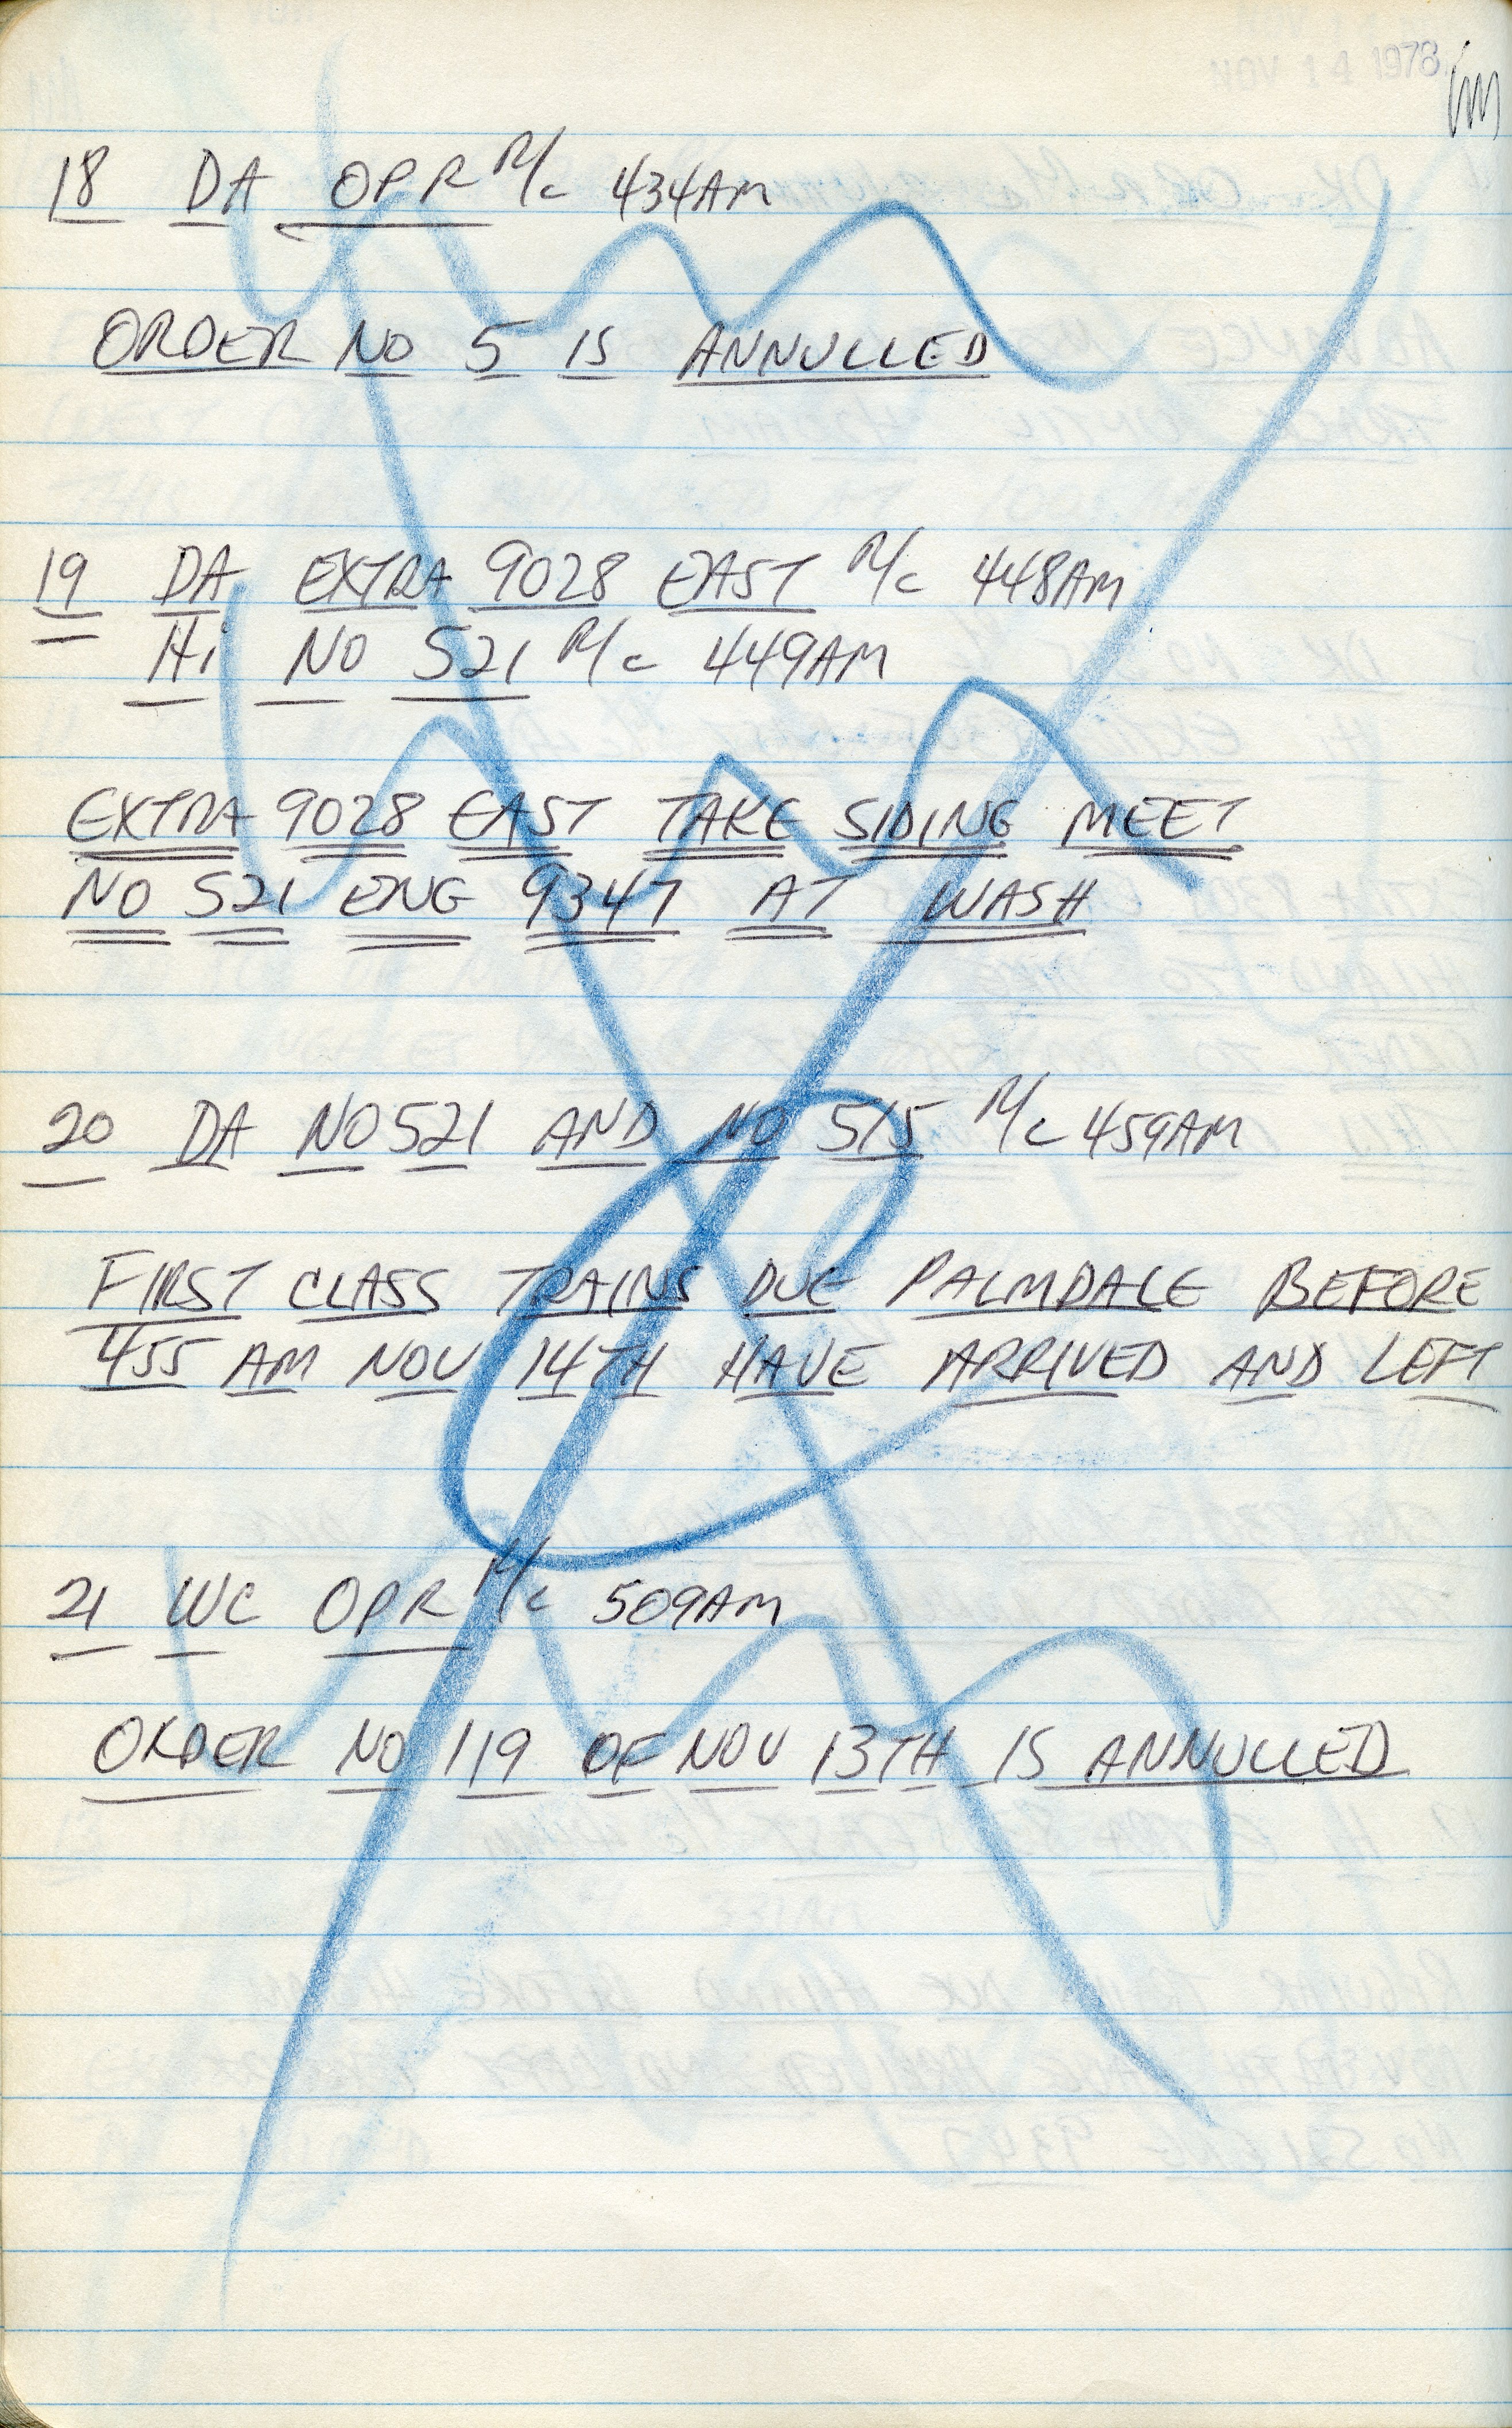 NOV 14 1978
18 DA OPR M/c 434AM
ORDER NO 5 IS ANNULLED
19 DA EXTRA 9028 EAST M/c 448AM
Hi NO 521 M/c 449AM
EXTRA 9028 EAST TAKE SIDING MEET
NO 521 ENG 9347 AT WASH
20 DA NO 521 AND NO 515 M/c 459AM
FIRST CLASS TRAINS DUE PALMDALE BEFORE
455 AM NOV 14TH HAVE ARRIVED AND LEFT
21 WC OPR M/c 509AM
ORDER NO 119 OF NOV 13TH IS ANNULLED